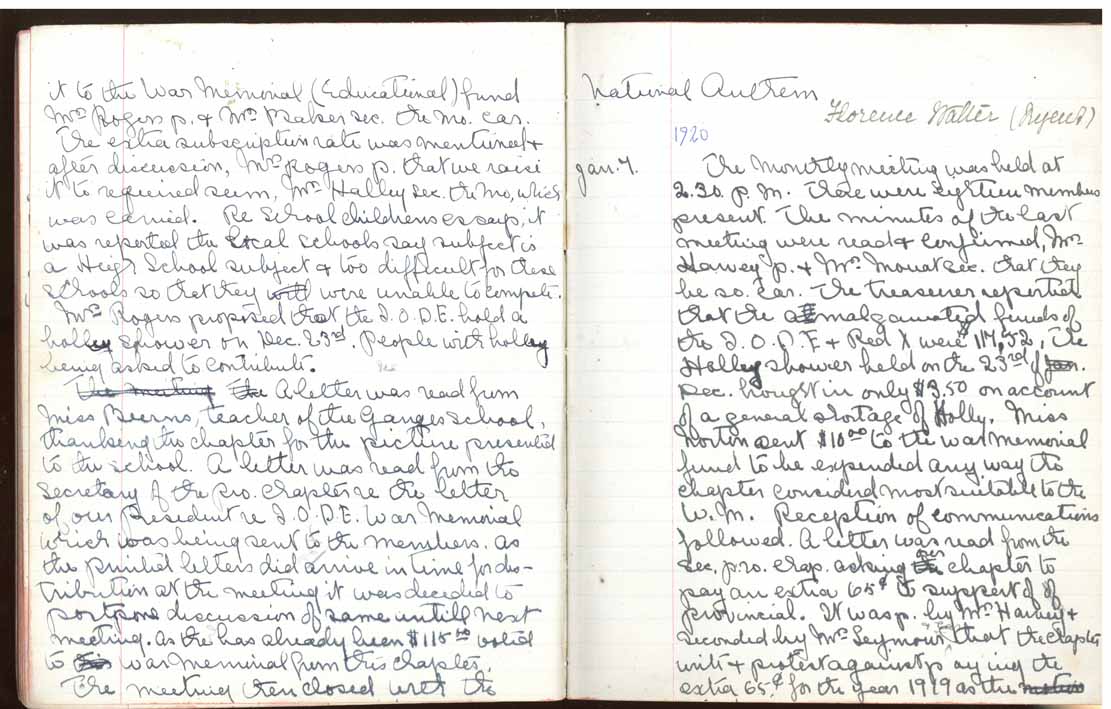 it to the War Memorial (Educational) fund
Mrs Rogers p. & Mrs Baker sec. the mo. car.
The extra subscription rate was mentioned &
after discussion, Mrs Rogers p. that we raise
it to required sum, Mrs Halley sec. the mo, which
was carried. Re School childrens essays; it
was reported the local schools say subject is
a High School subject & too difficult for these
schools so that they will were unable to compete.
Mrs Rogers proposed that the I.O.D.E. hold a
holly shower on Dec. 23rd. People with holly
being asked to contribute.
The meeting the A letter was read from
Miss Beerns, teacher of the Ganges school,
thanking the chapter for the picture presented
to the school. A letter was read from the
Secretary of the Pro. Chapter re the letter
of our President re I.O.D.E. War Memorial
which was being sent to the members. As
the printed letters did arrive in time for dis-
tribution at the meeting it was decided to
postpone discussion of same untill next
meeting. As the has already been $115.00 voted
to this War Memorial from this chapter.
The meeting then closed with the
National Anthem
Florence Walter (Regent)
1920
Jan. 7. The Monthly meeting was held at
2.30 p.m. There were eighteen members
present. The minutes of the last
meeting were read & confirmed, Mrs
Harvey p. & Mrs Mouat sec. that they
be so. Car. The treasurer reported
that the amalgamated funds of
the I.O.D.E & Red X were 117,52, The
Holly shower held on the 23rd of Jan.
Dec. brought in only $3.50 on account
of a general shortage of Holly. Miss
Norton sent $10.00 to the war memorial
fund to be expended any way the
chapter considerd most suitable to the
W.M. Reception of communications
followed. A letter was read from the
Sec. pro. chap. asking the our chapter to
pay an extra 65¢ to support of of
provincial. It was p. by Mrs Harvey &
seconded by Mrs Seymour that the chapter
write & protest against paying the
extra 65¢ for the year 1919 as the